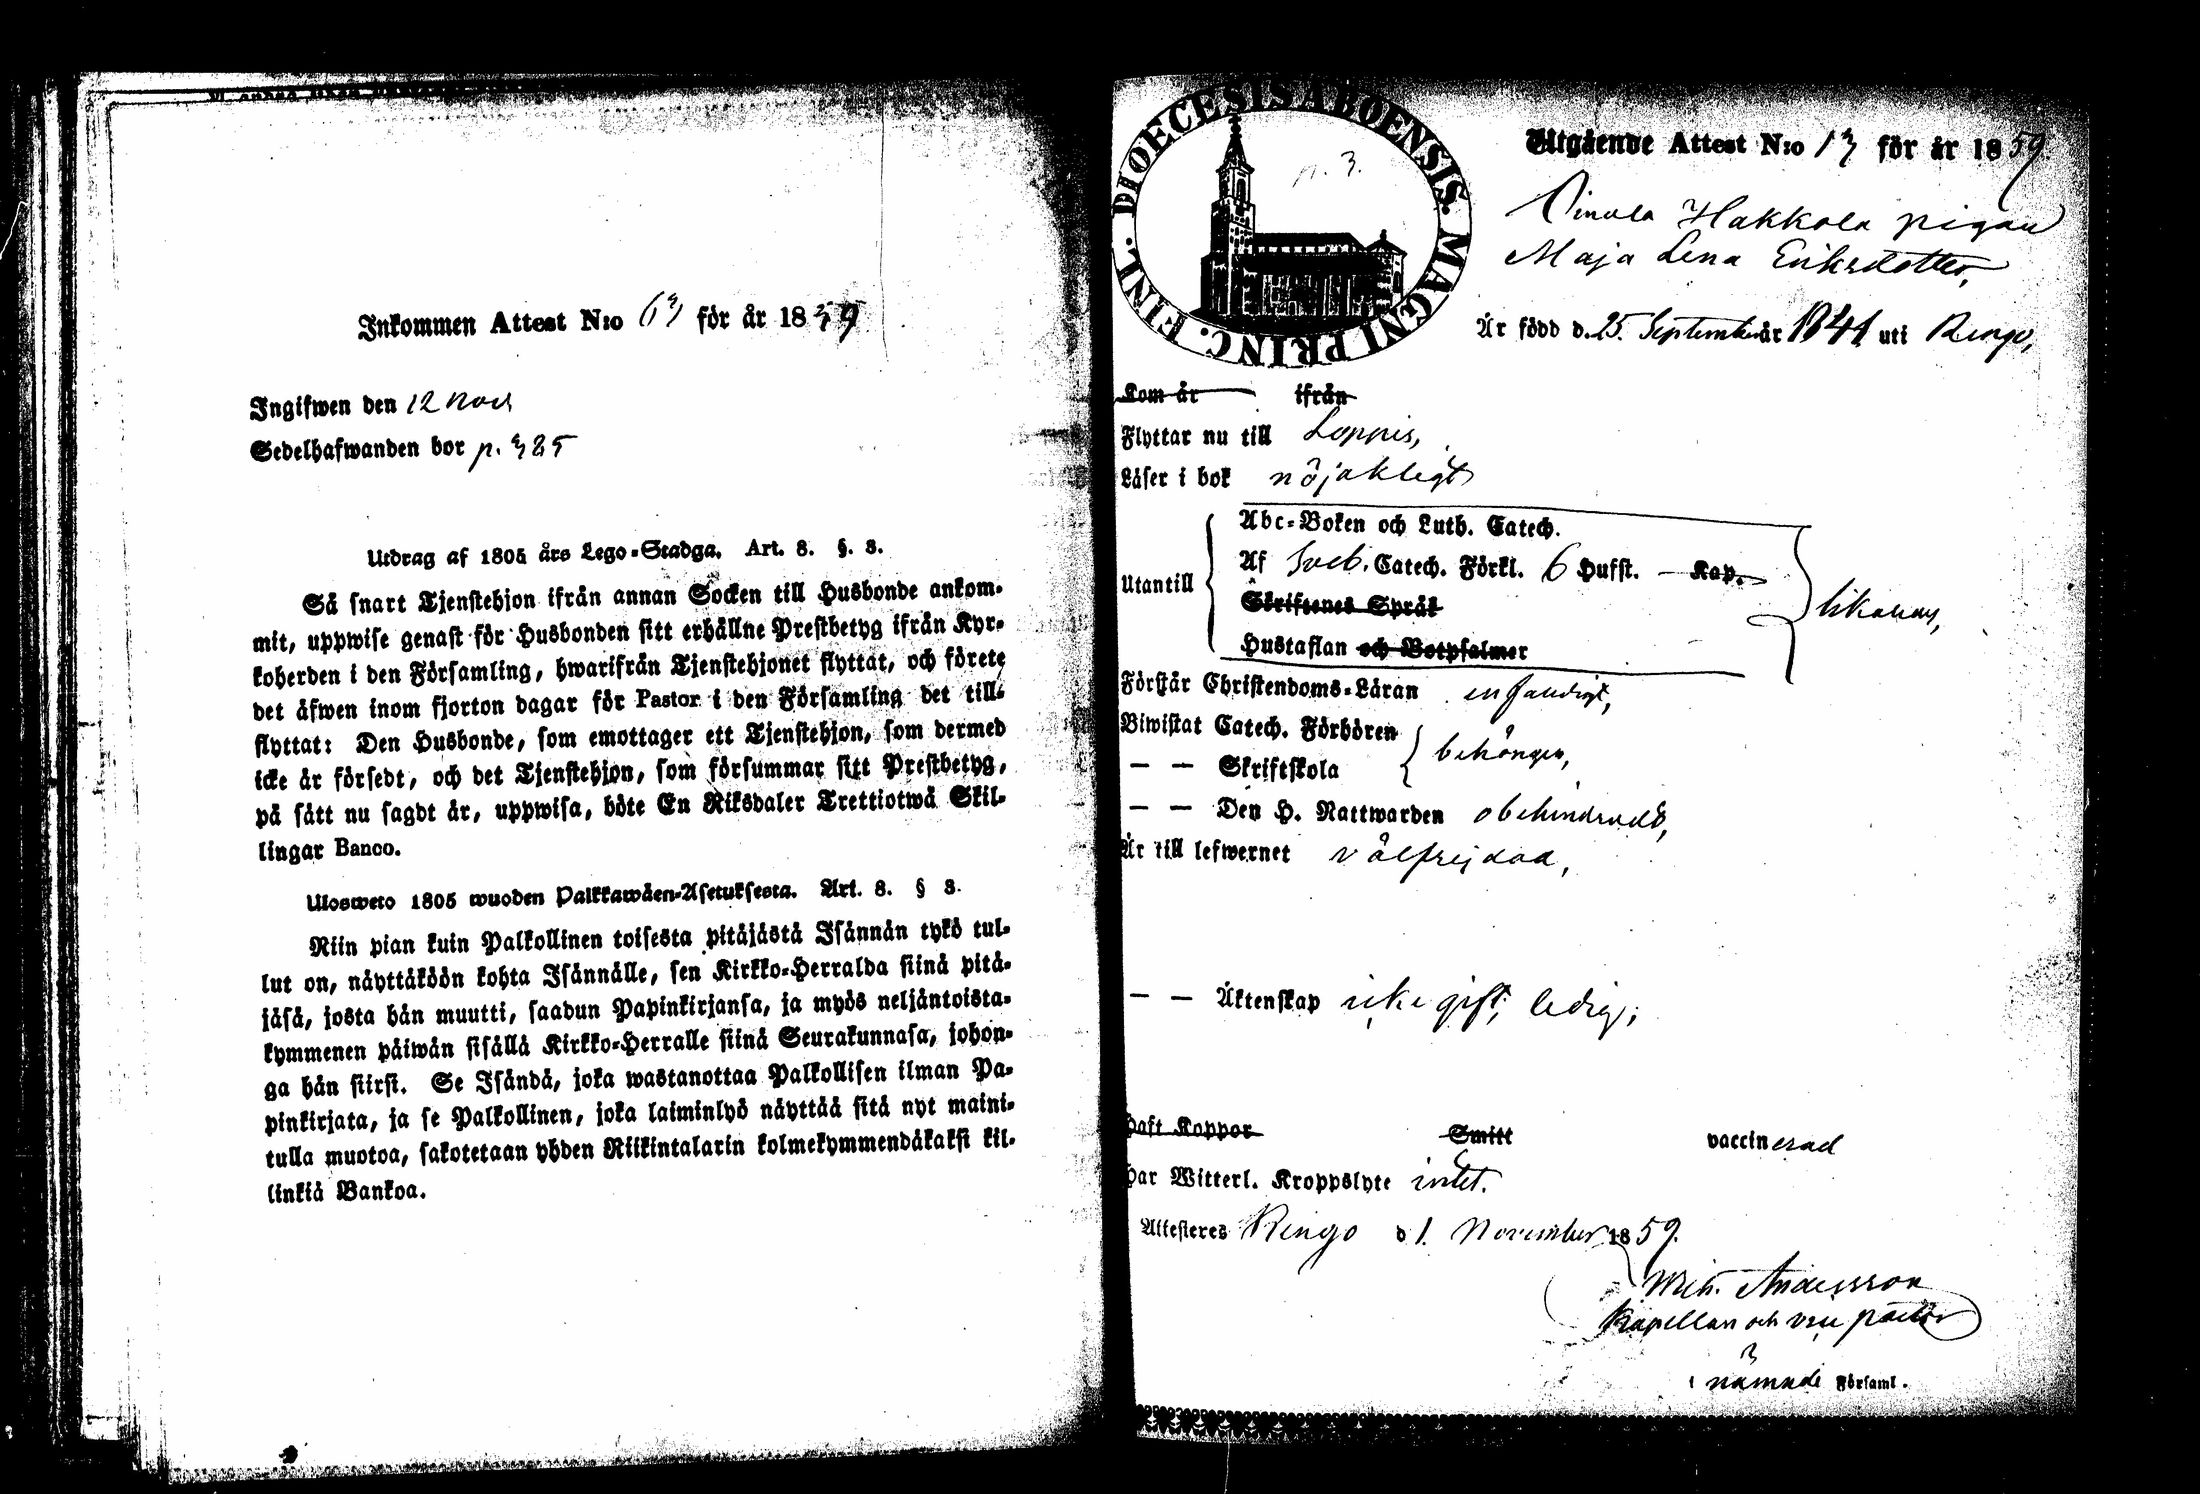 Inkommen Attest N:o 63 för år 1859
Ingifwen den 12 Nov
Sedelhafwanden bor p. 385
Utdrag af 1805 års Lego-Stadga. Art. 8. §. 3.
Så snart Tjenstehjon ifrån annan Socken till Husbonde ankom-
mit, uppwise genast för Husbonden sitt erhållne Prestbetyg ifrån Kyr-
koherden i den Församling, hwarifrån Tjenstehjonet flyttat, och förete
det äfwen inom fjorton dagar för Pastor i den Församling det till-
flyttat: Den Husbonde, som emottager ett Tjenstehjon, som dermed
icke är försedt, och det Tjenstehjon, som försummar sitt Prestbetyg,
på sätt nu sagdt är, uppwisa, böte En Riksdaler Trettiotwå Skil-
lingar Banco.
Ulosweto 1805 wuoden Palkkawäen-Asetuksesta. Art. 8. § 3.
Niin pian kuin Palkollinen toisesta pitäjästä Isännän tykö tul-
lut on, näyttäköön kohta Isännälle, sen Kirkko-Herralda siinä pitä-
jäsä, josta hän muutti, saadun Papinkirjansa, ja myös neljäntoista-
kymmenen päiwän sisällä Kirkko-Herralle siinä Seurakunnasa, johon-
ga hän siirsi. Se Isändä, joka wastanottaa Palkollisen ilman Pa-
pinkirjata, ja se Palkollinen, joka laiminlyö näyttää sitä nyt maini-
tulla muotoa, sakotetaan yhden Riikintalarin kolmekymmendäkaksi kil-
linkiä Bankoa.
DIOECESIS ABOENSIS. MAGNI PRINC. FINL.
p. 3.
Utgående Attest N:o 13 för år 1859.
Oinala Hakkola pigan
Maja Lena Eriksdotter,
Är född d. 25. September år 1841 uti Rengo,
Kom år ifrån
Flyttar nu till Loppis,
Läser i bok nöjaktigt
Utantill
Abc-Boken och Luth. Catech.
Af Sveb. Catech. Förkl. 6 Hufst. Kap.
Skriftenes Språk
Hustaflan och Botpsalmer
likaså,
Förstår Christendoms-Läran enfaldigt,
Biwistat Catech. Förhören
— — Skriftskola
behörigen,
— — Den H. Nattwarden obehindrad,
Är till lefwernet välfrejdad,
— — Äktenskap icke gift, ledig;
Haft Koppor Smitt vaccinerad
Har Witterl. Kroppslyte intet.
Attesteres Rengo d 1. November 1859.
Wilh. Andersson
Kapellan och vice pastor
i nämnde Församl.